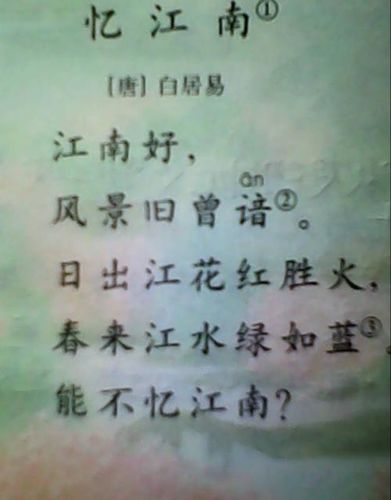 忆江南①
［唐］白居易
江南好，
ān
风景旧曾谙②。
日出江花红胜火，
春来江水绿如蓝③。
能不忆江南？